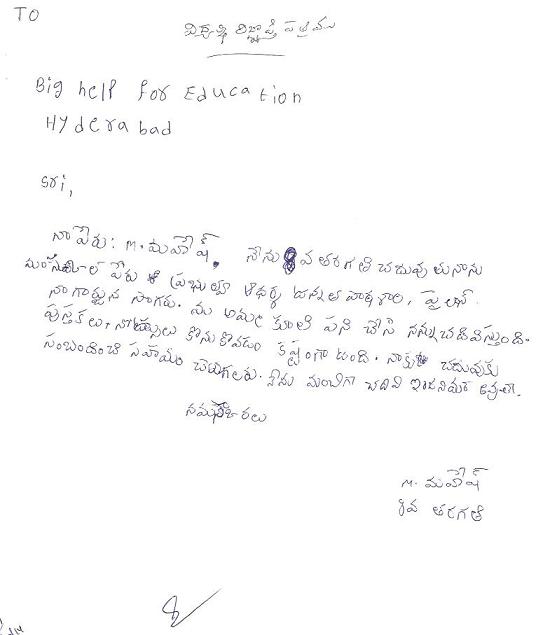 TO
విద్యార్థి విజ్ఞాప్తి పత్రము
Big help for Education
Hyderabad
sri,
నా పేరు: M. మహేష్. నేను 8వ తరగతి చదువుతునాను
పేరు ప్రభుత్వ ఆదర్శ ఉన్నత పాఠశాల, పైలాన్.
నాగార్జున సాగరు. మా అమ్మ కూలి పని చేసి నన్ను చదివిస్తుంది.
పుస్తకలు, నోటుసులు కొనుకోవడం కష్టంగా ఉంది. నాకు చదువుకు
సంబందించి సహాయం చెయగలరు. నేను మంచిగా చదివి
నమస్కారలు
M. మహేష్
8వ తరగతి